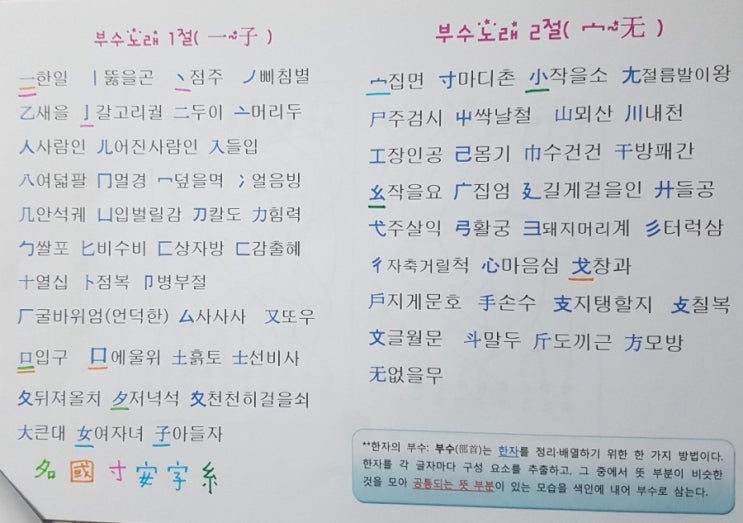 부수노래 1절( 一~子 )
一한일 丨뚫을곤 丶점주 丿삐침별
乙새을 亅갈고리궐 二두이 亠머리두
人사람인 儿어진사람인 入들입
八여덟팔 冂멀경 冖덮을멱 冫얼음빙
几안석궤 凵입벌릴감 刀칼도 力힘력
勹쌀포 匕비수비 匚상자방 匸감출혜
十열십 卜점복 卩병부절
厂굴바위엄(언덕한) 厶사사사 又또우
口입구 囗에울위 土흙토 士선비사
夂뒤져올치 夕저녁석 夊천천히걸을쇠
大큰대 女여자녀 子아들자
名 國 寸 安 字 系
부수노래 2절( 宀~无 )
宀집면 寸마디촌 小작을소 尢절름발이왕
尸주검시 屮싹날철 山뫼산 川내천
工장인공 己몸기 巾수건건 干방패간
幺작을요 广집엄 廴길게걸을인 廾들공
弋주살익 弓활궁 彐돼지머리계 彡터럭삼
彳자축거릴척 心마음심 戈창과
戶지게문호 手손수 支지탱할지 攴칠복
文글월문 斗말두 斤도끼근 方모방
无없을무
**한자의 부수: 부수(部首)는 한자를 정리·배열하기 위한 한 가지 방법이다.
한자를 각 글자마다 구성 요소를 추출하고, 그 중에서 뜻 부분이 비슷한
것을 모아 공통되는 뜻 부분이 있는 모습을 색인에 내어 부수로 삼는다.